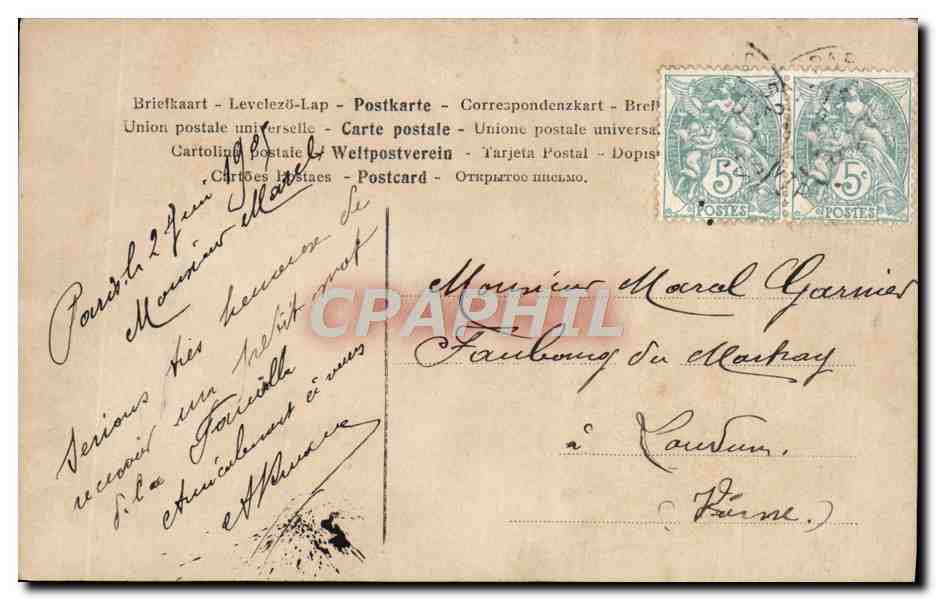 Briefkaart - Levelezö-Lap - Postkarte - Correspondenzkart - Bref
Union postale universelle - Carte postale - Unione postale universa
Cartolina postale - Weltpostverein - Tarjeta Postal - Dopis
Cartões Postaes - Postcard - Открытое письмо.
5c 5c
POSTES POSTES
Paris le 27 Juin 1905
Monsieur Marcel
serions très heureux de
recevoir un petit mot
d. la Famille
Amicalement à vous
CPAPHIL
Monsieur Marcel Garnier
Faubourg du Martray
à Loudun.
(Vienne.)